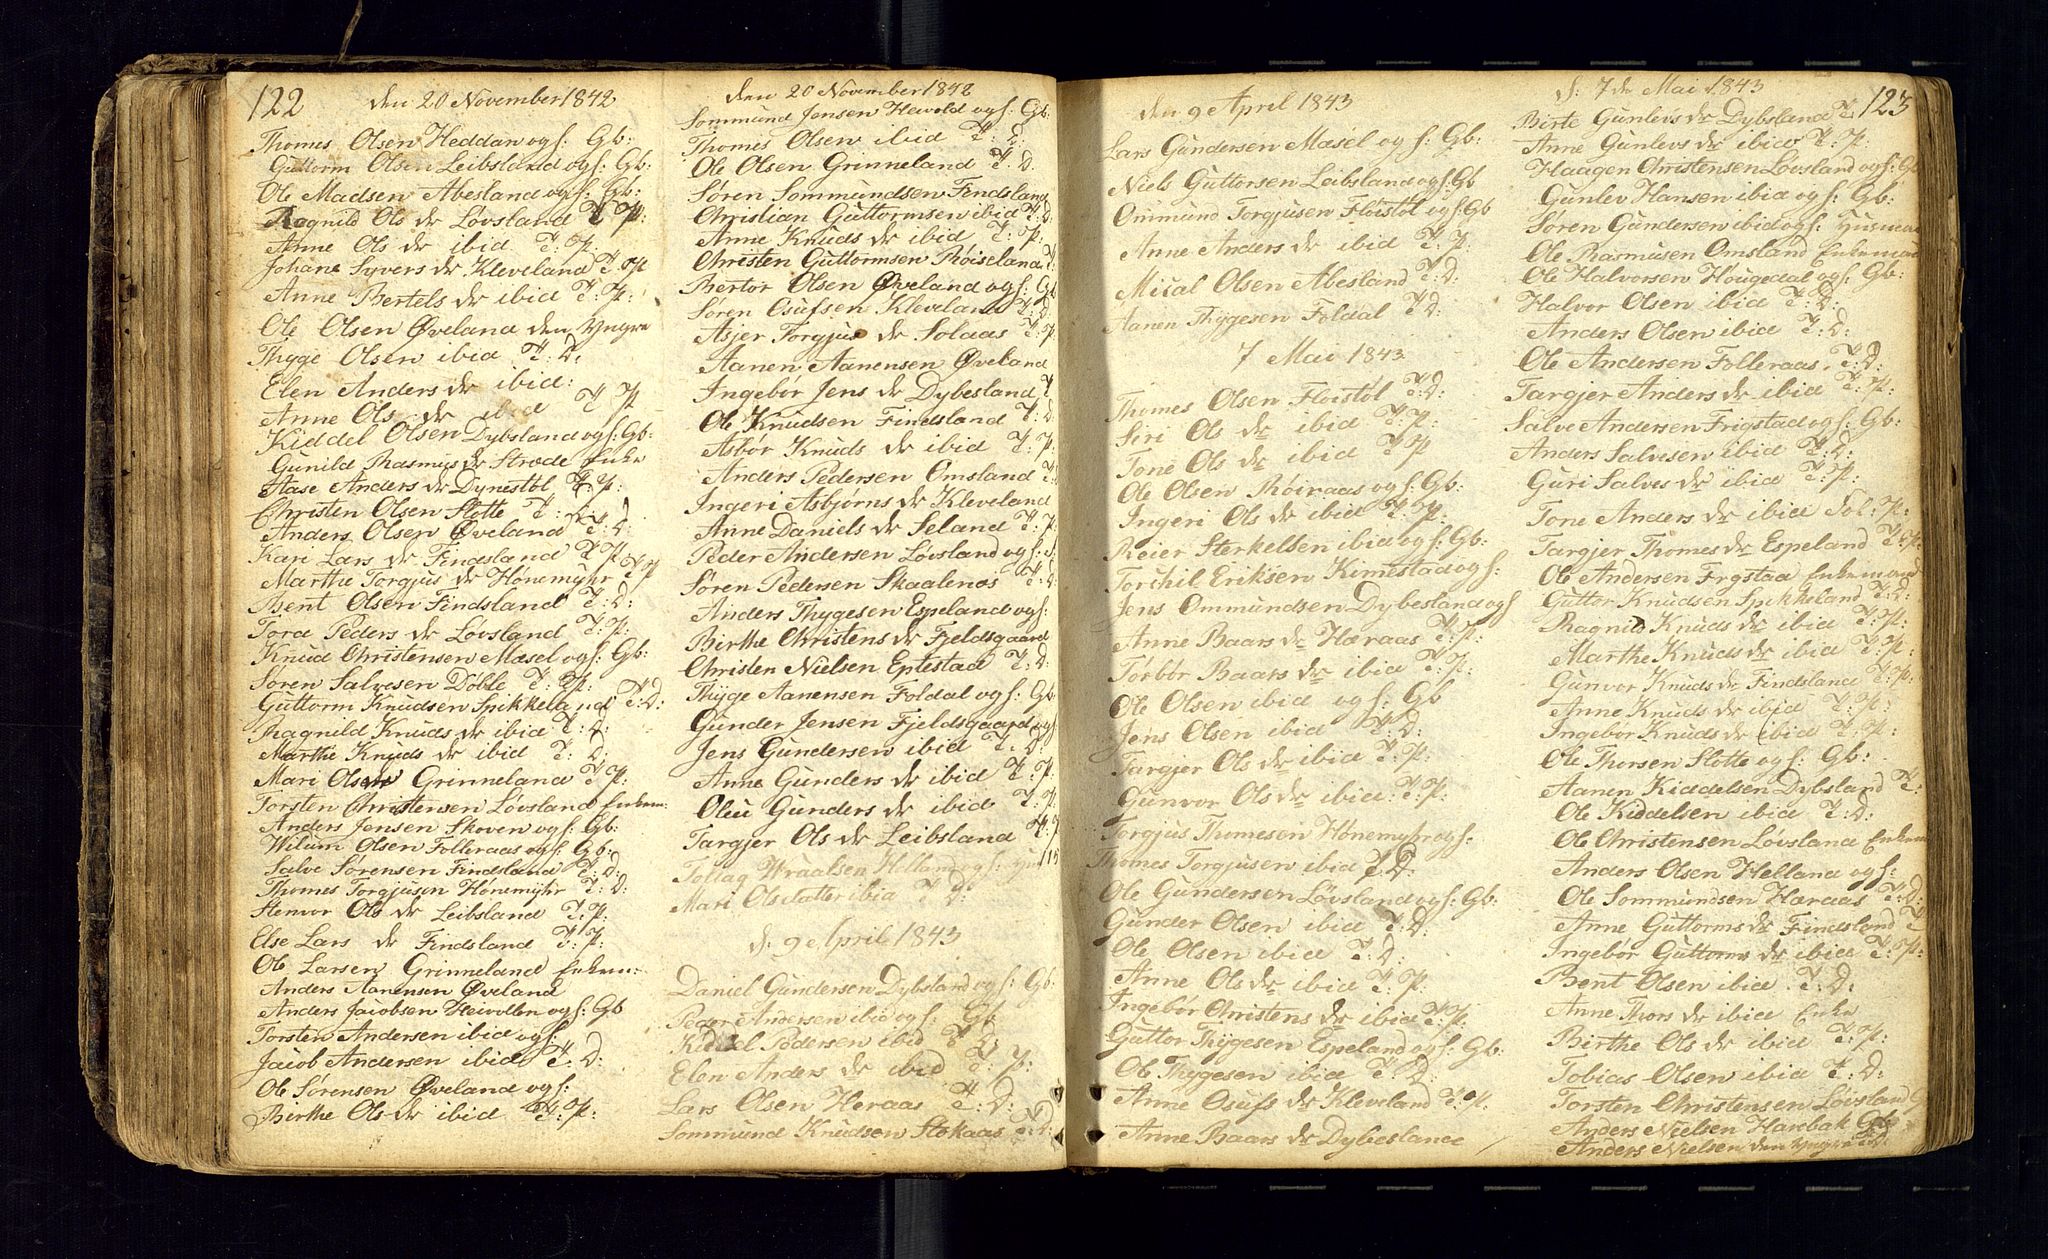 122
den 20 November 1842
Thomes Olsen Heddan og f: Gb:
Guttorm Olsen Leibsland og f: Gb:
Ole Madsen Abesland og f: Gb:
Ragnild Ols dr Løvsland T P:
Anne Ols dr ibid T: P:
Johane Syvers dr Kleveland T: P
Anne Bertels dr ibid T: P:
Ole Olsen Øveland den Yngre
Thyge Olsen ibid T: D:
Elen Anders dr ibid:
Anne Ols dr ibid T P
Kiddel Olsen Dybsland og f: Gb:
Gunild Rasmus dr Strøde Enke
Aase Anders dr Dynestøl T: P:
Christen Olsen Slotte T: D:
Anders Olsen Øveland T: D:
Kari Lars dr Findsland T P
Marthe Torgjus dr Hønemyhr T P
Bent Olsen Findsland T: D:
Tora Peders dr Løvsland T: P:
Knud Christensen Mæsel og f: Gb:
Søren Salvesen Døble T: P:
Guttorm Knudsen Spikkeland T: D:
Ragnild Knuds dr ibid T: D:
Marthe Knuds dr ibid T: D:
Mari Olsen Grinneland T P:
Torsten Christensen Løvsland Enkem:
Anders Jensen Skoven og f: Gb:
Wilum Olsen Folleraas og f: Gb:
Salve Sørensen Findsland T: D:
Thomes Torgjusen Hønemyhr T: D:
Stenvor Ols dr Leibsland T: P:
Else Lars dr Findsland T: P:
Ole Larsen Grinneland Enkem:
Anders Aanensen Øveland
Anders Jacobsen Heivollen og f: Gb
Torsten Andersen ibid og f:
Jacob Andersen ibid T: D:
Ole Sørensen Øveland og f:
Birthe Ols dr ibid T: P:
den 20 November 1842
Sommund Jensen Hevold og f: Gb:
Thomes Olsen ibid T: D:
Ole Olsen Grinneland T: D
Søren Sommundsen Findsland
Christian Guttormsen ibid T: D:
Anne Knuds dr ibid T: P:
Christen Guttormsen Røiseland T:
Bertor Olsen Øveland og f: Gb
Søren Osufsen Kleveland T: D
Asjer Torgjus dr Solaas T: P
Aanen Aanensen Øveland
Ingebør Jens dr Dybesland T
Ole Knudsen Findsland T: D
Asbør Knuds dr ibid T: P.
Anders Pedersen Omsland T:
Ingeri Asbjørns dr Kleveland
Anne Daniels dr Seland T: P
Peder Andersen Løvsland og f:
Søren Pedersen Skaalenæs T: D
Anders Thygesen Espeland og f:
Birthe Christens dr Fjeldsgaard
Christen Nielsen Eptestad T: D:
Thyge Aanensen Foldal og f: Gb
Gunder Jensen Fjeldsgaard og f
Jens Gundersen ibid T: D
Anne Gunders dr ibid T: P.
Oleu Gunders dr ibid T: P.
Targjer Ols dr Leibsland T: P
Tollag Wraalsen Holland og f:
Mari Olsdatter ibid T D:
d. 9 April 1843
Daniel Gundersen Dybsland og f: Gb:
Peder Andersen ibid og f: Gb
Kiddel Pedersen ibid T D:
Elen Anders dr ibid T: P:
Lars Olsen Heraas T: D:
Sommund Knudsen Stokaas T: D:
den 9 April 1843
Lars Gundersen Mæsel og f: Gb:
Niels Guttorsen Leibsland og f: Gb
Ommund Torgjusen Fløistøl og f: Gb
Anne Anders dr ibid T: P:
Mical Olsen Abesland T: D:
Aanen Thygesen Foldal T D:
7 Mai 1843
Thomes Olsen Floistøl T: D:
Siri Ols dr ibid T: P:
Tone Ols dr ibid T P
Ole Olsen Røiraas og f: Gb:
Ingeri Ols dr ibid T: P.
Reier Sterkelsen ibid og f: Gb:
Torchil Eriksen Kimestad og f:
Jens Ommundsen Dybesland og f
Anne Baars dr Hæraas T: P:
Tørbør Baars dr ibid T: P:
Ole Olsen ibid og f: Gb
Jens Olsen ibid T: D:
Targjer Ols dr ibid T: P:
Gunvor Ols dr ibid T: P.
Torgjus Thomesen Hønemyhr og f:
Thomes Torgjusen ibid T D:
Ole Gundersen Løvsland og f: Gb:
Gunder Olsen ibid T: D:
Ole Olsen ibid T: D:
Anne Ols dr ibid T: P:
Ingebør Christens dr ibid T: P.
Guttor Thygesen Espeland og f: Gb:
Ole Thygesen ibid T: D:
Anne Osufs dr Kleveland T: P.
Anne Baars dr Dybesland
d: 7de Mai 1843
123
Birte Gunlevs dr Dybsland T:
Anne Gunlevs dr ibid T: P:
Haagen Christensen Løvsland og f: Gb
Gunlev Hansen ibid og f: Gb:
Søren Gundersen ibid og f: Husmand
Ole Rasmusen Omsland Enkemand
Ole Halvorsen Hougedal og f: Gb:
Halvor Olsen ibid T: D:
Anders Olsen ibid T: D:
Ole Andersen Folleraas. T: D:
Targjer Anders dr ibid T: P:
Salve Andersen Frigstad og f: Gb:
Anders Salvesen ibid T: D:
Guri Salves dr ibid T: P:
Tone Anders dr ibid Sol: P:
Targjer Thomes dr Espeland T: P:
Ole Andersen Frgstad Enkemand
Guttor Knudsen Spikkeland T: D:
Ragnild Knuds dr ibid T: P:
Marthe Knuds dr ibid T: P:
Gunvor Knuds dr Findsland T: P:
Anne Knuds dr ibid T: P:
Ingebør Knuds dr ibid T: P:
Ole Thorsen Slotte og f: Gb:
Aanen Kiddelsen Dybsland T:
Ole Kiddelsen ibid T: D:
Ole Christensen Løvsland Enkem
Anders Olsen Helland og f:
Ole Sommundsen Hæraas T: D:
Anne Guttorms dr Findsland T
Ingebør Guttorms dr ibid T: P:
Bent Olsen ibid T: D:
Anne Thors dr ibid Enke
Birthe Ols dr ibid T: P:
Tobias Olsen ibid T: D:
Torsten Christensen Løvsland
Anders Nielsen Harebak Gb
Anders Nielsen den Yngre ibid